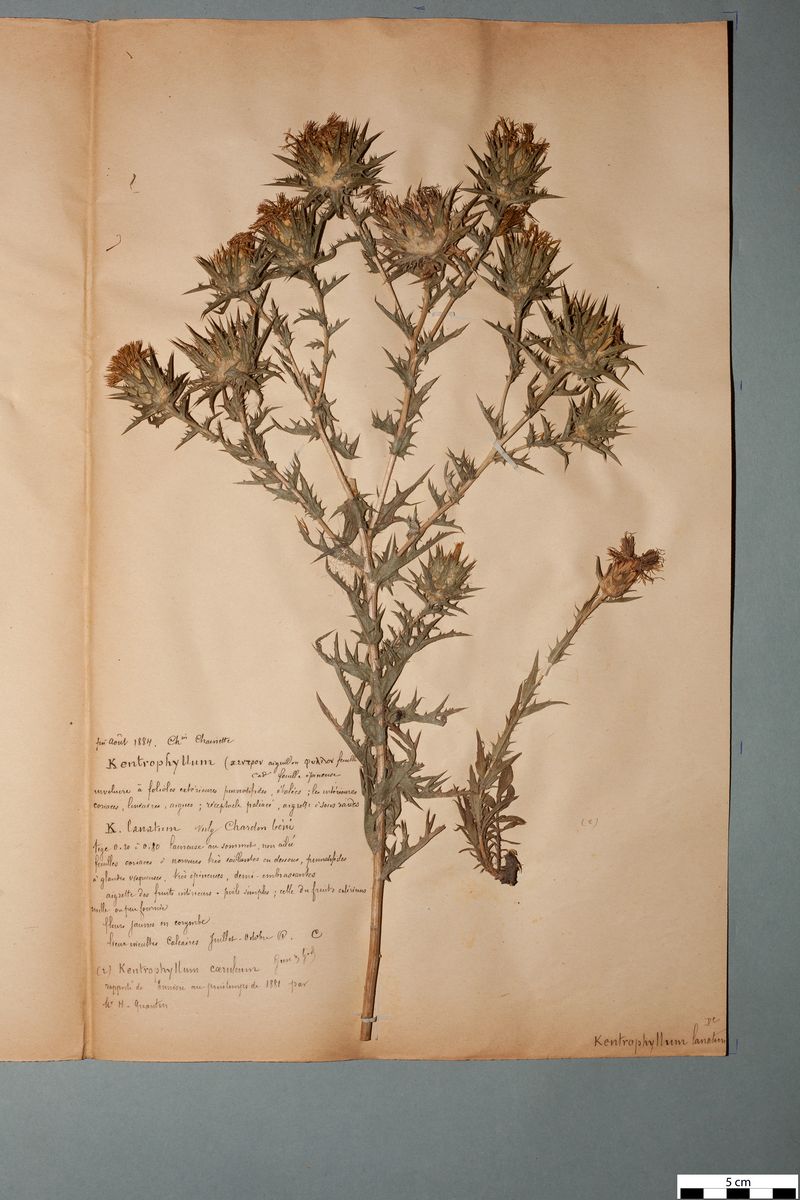 fin Août 1884. Chin Charrette
Kentrophyllum (κεντρον aiguillon φυλλον feuille
càd feuille épineuse
involucre à folioles extérieures pennatifides, étalées ; les intérieures
coriaces, linéaires, aigues ; réceptacle paléacé, aigrette à soies raides
K. lanatum vulg Chardon béni
Tige 0.20 à 0.80 laineuse au sommet, non ailée
feuilles coriaces à nervures très saillantes en dessous, pennatifides
à glandes visqueuses, très épineuses, demi-embrassantes
aigrette des fruits intérieurs à poils simples ; celle des fruits extérieurs
nulle ou peu fournie
fleurs jaunes en corymbe
lieux incultes calcaires Juillet-Octobre C
(2) Kentrophyllum cœruleum
rapporté de au printemps de 1881 par
Mr H. Quantin
(2)
DC
Kentrophyllum lanatum
5 cm